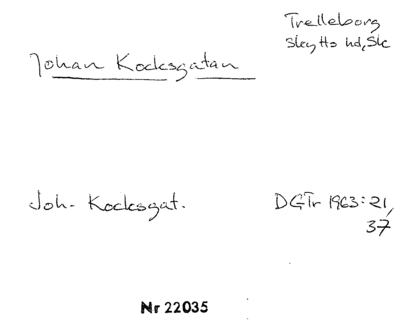 Trelleborg
Skytts hd, Sk
Johan Kocksgatan
Joh. Kocksgat. DGTr 1963:21,
37
Nr 22035